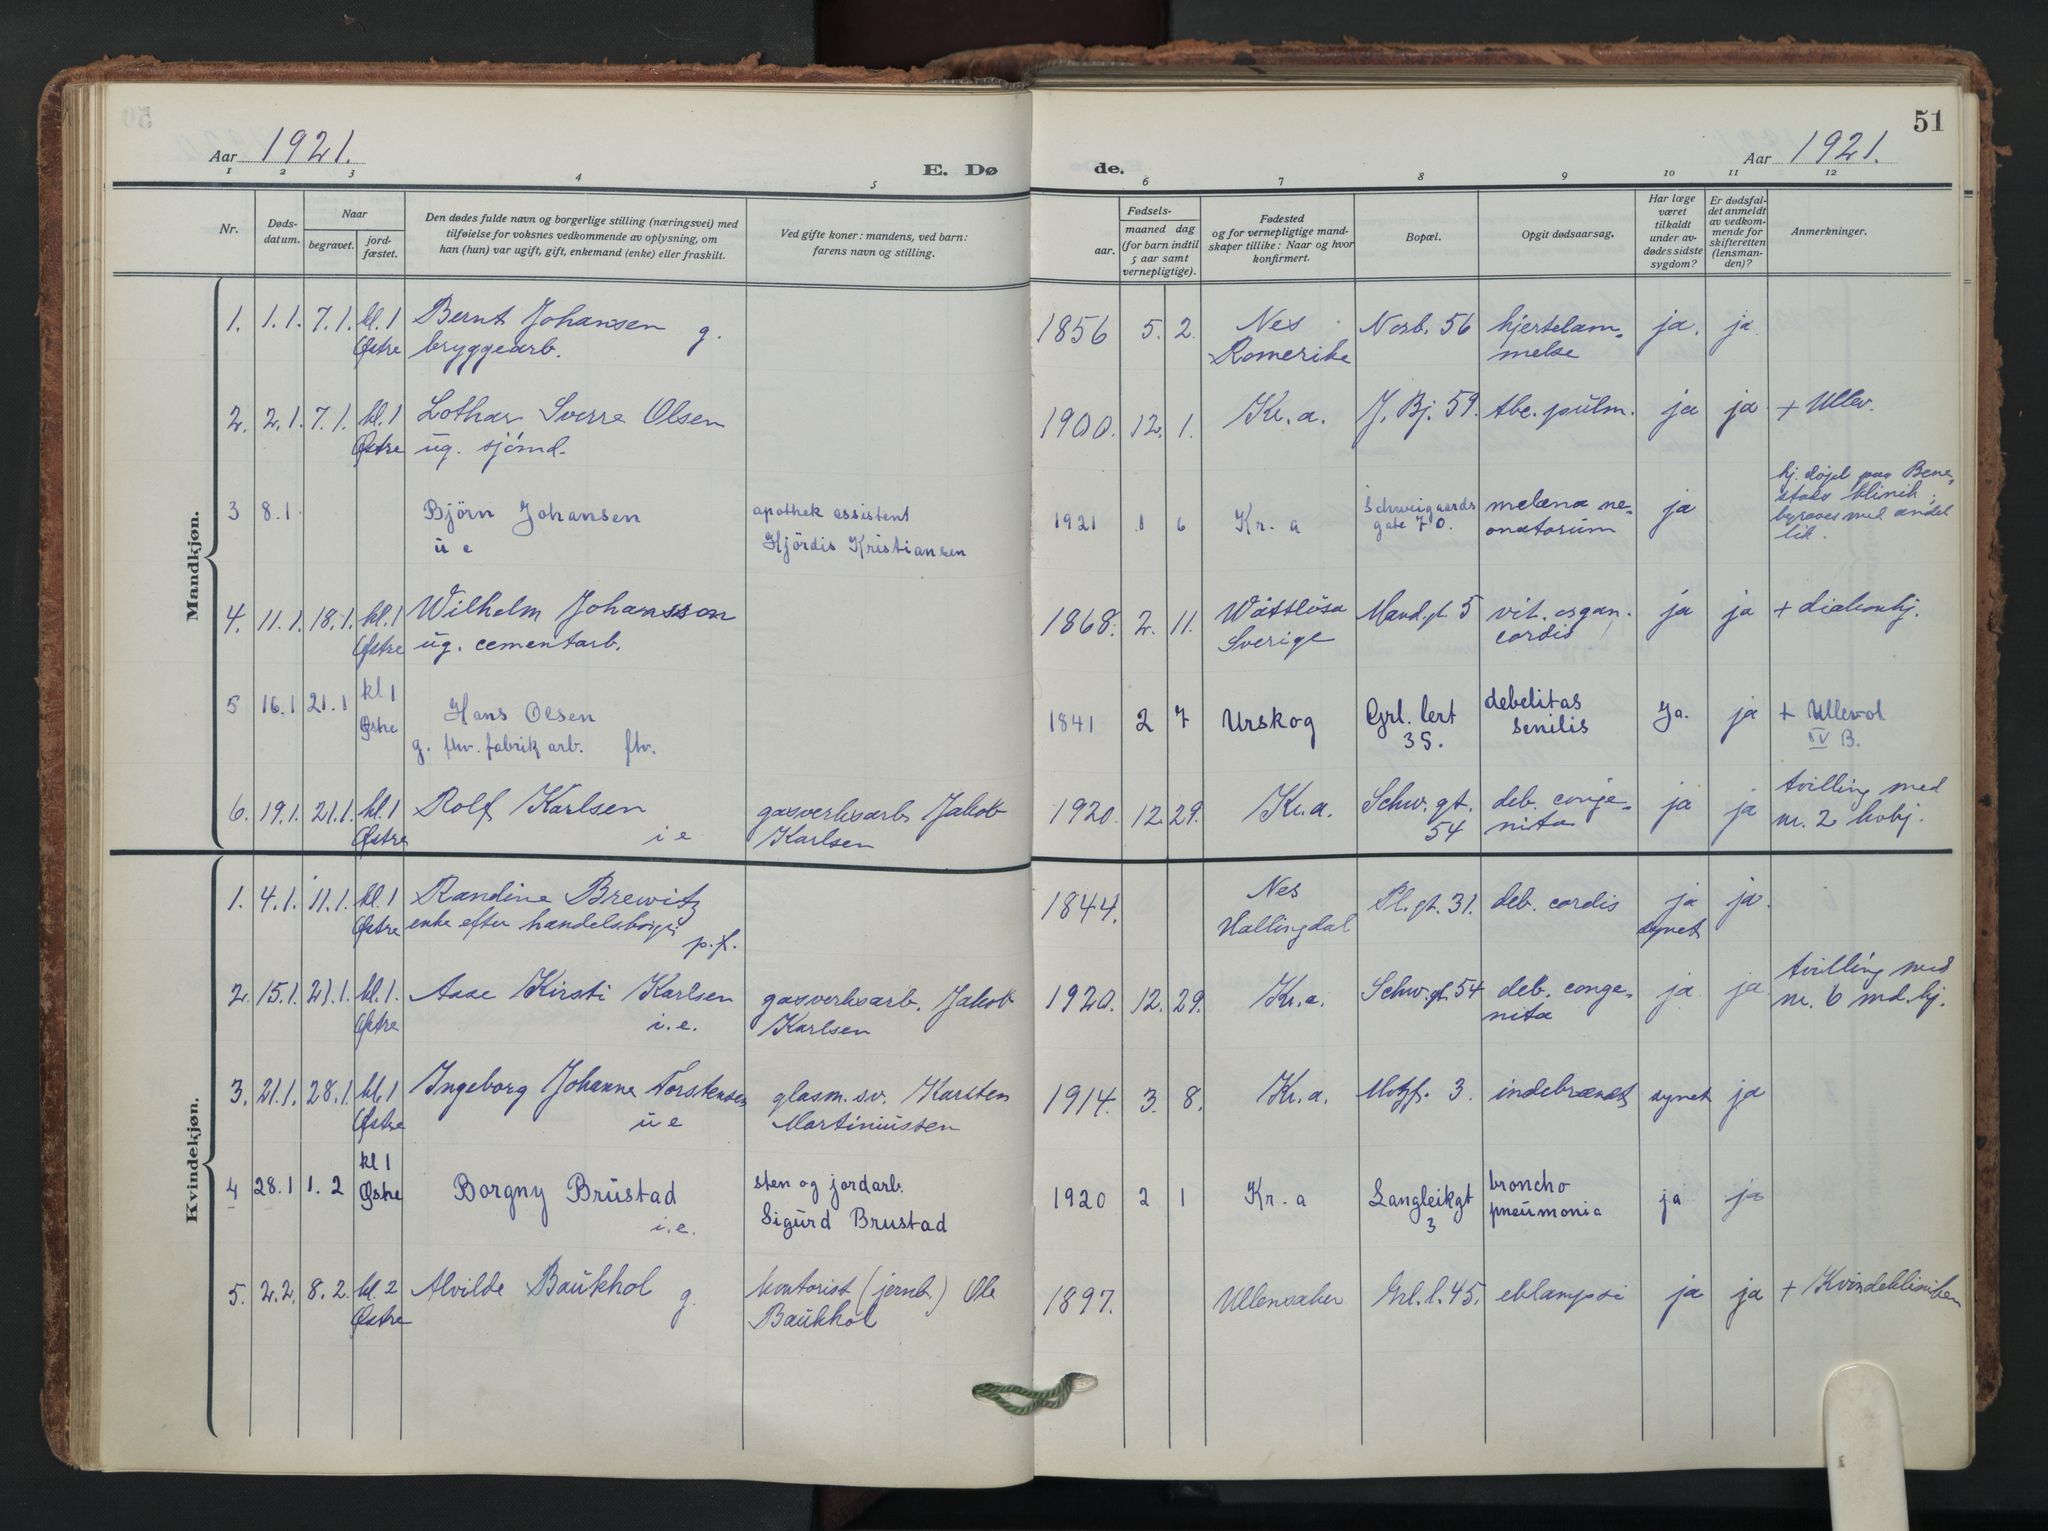 Aar 1921.
E. Dø
1 2 3 4 5
Nr. Døds-datum. Naar begravet. jord-fæstet. Den dødes fulde navn og borgerlige stilling (næringsvei) med tilføielse for voksnes vedkommende av oplysning, om han (hun) var ugift, gift, enkemand (enke) eller fraskilt. Ved gifte koner: mandens, ved barn: farens navn og stilling.
Mandkjøn.
1. 1.1. 7.1. kl.1 Bernt Johansen g.
Østre bryggearb.
2. 2.1. 7.1. kl.1 Lothar Sverre Olsen
Østre ug. sjömd.
3 8.1 Björn Johansen apothek assistent
u e Hjördis Kristiansen
4. 11.1. 18.1. kl.1 Wilhelm Johansson
Østre ug. cementarb.
5 16.1 21.1 kl 1 Hans Olsen
Østre g. fhv. fabrik arb. ftv.
6. 19.1. 21.1. kl.1 Rolf Karlsen gasverksarb. Jakob
Østre i e Karlsen
Kvindekjøn.
1. 4.1. 11.1. kl.1 Randine Brewitz
Østre enke efter handelsborger p.f.
2. 15.1. 21.1. kl.1. Aase Kirsti Karlsen gasverksarb. Jakob
Østre i.e. Karlsen
3. 21.1. 28.1. kl.1 Ingeborg Johanne Torstensen glasm.sv. Karsten
Østre u e Martiniussen
4 28.1 1.2 kl 1 Borgny Brustad sten og jordarb.
Østre i.e. Sigurd Brustad
5. 2.2. 8.2. kl.2 Alvilde Baukhol g. kontorist (jernb.) Ole
Østre Baukhol
51
de. Aar 1921.
6 7 8 9 10 11 12
Fødsels- aar. maaned dag (for barn indtil 5 aar samt vernepligtige). Fødested og for vernepligtige mandskaper tillike: Naar og hvor konfirmert. Bopæl. Opgit dødsaarsag. Har læge været tilkaldt under avdødes sidste sygdom? Er dødsfaldet anmeldt av vedkommende for skifteretten (lensmanden)? Anmerkninger.
1856 5. 2. Nes Norb. 56 hjertelam- ja. ja
Romerike melse
1900. 12. 1. Kr.a. J. Bj. 59. tbc. pulm. ja ja + Ullev.
1921 1 6 Kr. a Schweigaards gate 70. melæna ne- ja hj. døpt paa Bene-
onatorum stads klinik;
begraves med andet
lik.
1868. 2. 11. Wättlösa Mand.gt. 5 vit. organ. ja ja + diakonhj.
Sverige cordis
1841 2 7 Urskog Grl. lert debelitas Ja. ja + Ullevol
35. senilis IV B.
1920. 12. 29. Kr.a. Schw. gt. deb. conge- ja ja tvilling med
54 nita nr. 2 kvkj.
1844. Nes Pl.gt. 31. deb. cordis ja ja.
Hallingdal synet
1920. 12. 29. Kr.a. Schw. gt. 54 deb. conge- ja ja tvilling med
nita nr. 6 md.kj.
1914. 3. 8. Kr.a. Motzf. 3. indebrændt synet ja
1920 2 1 Kr. a Langleikgt broncho ja ja
3 pneumonia
1897. Ullensaker Grl. l. 45. eklampsi ja ja + Kvindeklinikken